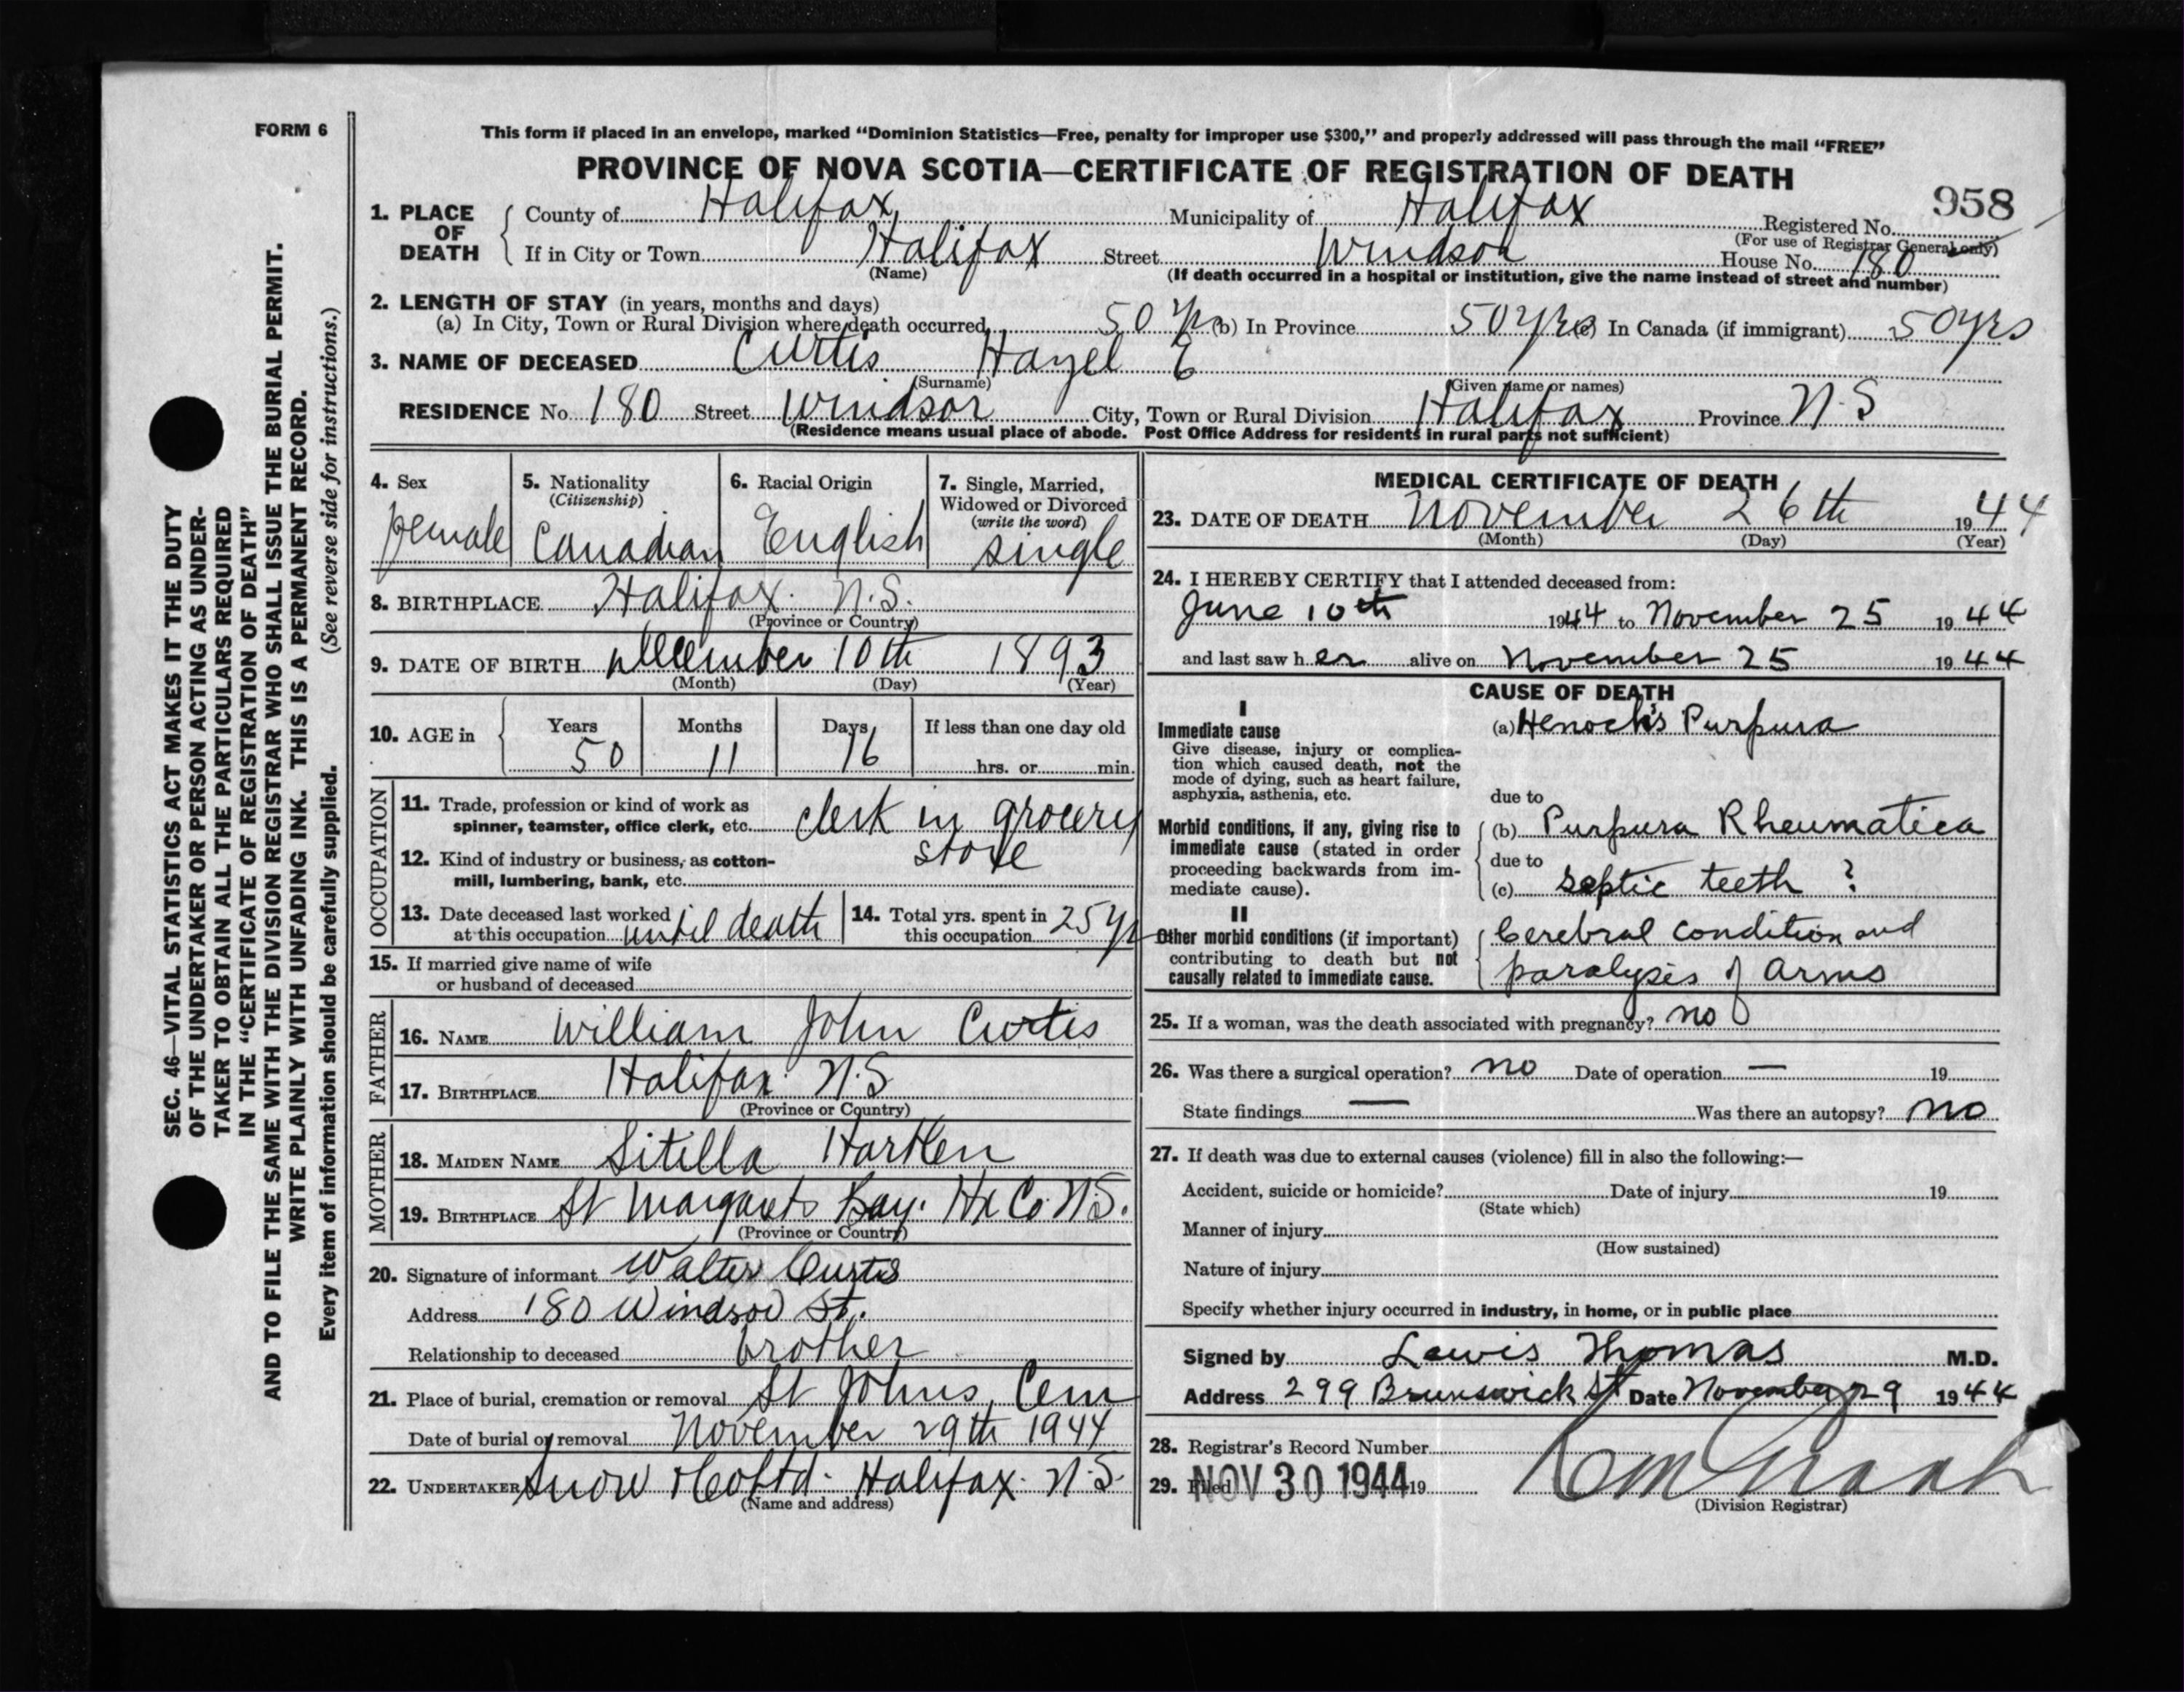 FORM 6
This form if placed in an envelope, marked “Dominion Statistics—Free, penalty for improper use $300,” and properly addressed will pass through the mail “FREE”
PROVINCE OF NOVA SCOTIA—CERTIFICATE OF REGISTRATION OF DEATH
958
1. PLACE OF DEATH County of Halifax, Municipality of Halifax Registered No.
(For use of Registrar General only)
If in City or Town Halifax Street Windsor House No. 180
(Name) (If death occurred in a hospital or institution, give the name instead of street and number)
2. LENGTH OF STAY (in years, months and days)
(a) In City, Town or Rural Division where death occurred 50 Yrs (b) In Province 50 yrs (c) In Canada (if immigrant) 50 yrs
3. NAME OF DECEASED Curtis Hazel E
(Surname) (Given name or names)
RESIDENCE No. 180 Street Windsor City, Town or Rural Division Halifax Province N.S
(Residence means usual place of abode. Post Office Address for residents in rural parts not sufficient)
4. Sex
female
5. Nationality
(Citizenship)
Canadian
6. Racial Origin
English
7. Single, Married,
Widowed or Divorced
(write the word)
single
8. BIRTHPLACE Halifax. N.S.
(Province or Country)
9. DATE OF BIRTH December 10th 1893
(Month) (Day) (Year)
10. AGE in Years Months Days If less than one day old
50 11 16 hrs. or min.
OCCUPATION
11. Trade, profession or kind of work as
spinner, teamster, office clerk, etc. clerk in grocery
store
12. Kind of industry or business, as cotton-
mill, lumbering, bank, etc.
13. Date deceased last worked
at this occupation until death
14. Total yrs. spent in
this occupation 25 yr
15. If married give name of wife
or husband of deceased
FATHER
16. NAME William John Curtis
17. BIRTHPLACE Halifax N.S
(Province or Country)
MOTHER
18. MAIDEN NAME Sitella Hartlen
19. BIRTHPLACE St Margarets Bay. Hx Co. N.S.
(Province or Country)
20. Signature of informant Walter Curtis
Address 180 Windsor St.
Relationship to deceased brother
21. Place of burial, cremation or removal St Johns, Cem
Date of burial or removal November 29th 1944
22. UNDERTAKER Snow & Co Ltd. Halifax. N.S.
(Name and address)
MEDICAL CERTIFICATE OF DEATH
23. DATE OF DEATH November 26th 1944
(Month) (Day) (Year)
24. I HEREBY CERTIFY that I attended deceased from:
June 10th 1944 to November 25 1944
and last saw her alive on November 25 1944
CAUSE OF DEATH
I
Immediate cause
Give disease, injury or complica-
tion which caused death, not the
mode of dying, such as heart failure,
asphyxia, asthenia, etc.
(a) Henoch's Purpura
due to
Morbid conditions, if any, giving rise to
immediate cause (stated in order
proceeding backwards from im-
mediate cause).
(b) Purpura Rheumatica
due to
(c) septic teeth ?
II
Other morbid conditions (if important)
contributing to death but not
causally related to immediate cause.
Cerebral condition and
paralysis of arms
25. If a woman, was the death associated with pregnancy? no
26. Was there a surgical operation? no Date of operation — 19
State findings — Was there an autopsy? no
27. If death was due to external causes (violence) fill in also the following:—
Accident, suicide or homicide? Date of injury 19
(State which)
Manner of injury
(How sustained)
Nature of injury
Specify whether injury occurred in industry, in home, or in public place
Signed by Lewis Thomas M.D.
Address 299 Brunswick St Date November 29 1944
28. Registrar's Record Number
29. Filed NOV 30 1944 19
(Division Registrar)
SEC. 46—VITAL STATISTICS ACT MAKES IT THE DUTY
OF THE UNDERTAKER OR PERSON ACTING AS UNDER-
TAKER TO OBTAIN ALL THE PARTICULARS REQUIRED
IN THE “CERTIFICATE OF REGISTRATION OF DEATH”
AND TO FILE THE SAME WITH THE DIVISION REGISTRAR WHO SHALL ISSUE THE BURIAL PERMIT.
WRITE PLAINLY WITH UNFADING INK. THIS IS A PERMANENT RECORD.
Every item of information should be carefully supplied. (See reverse side for instructions.)